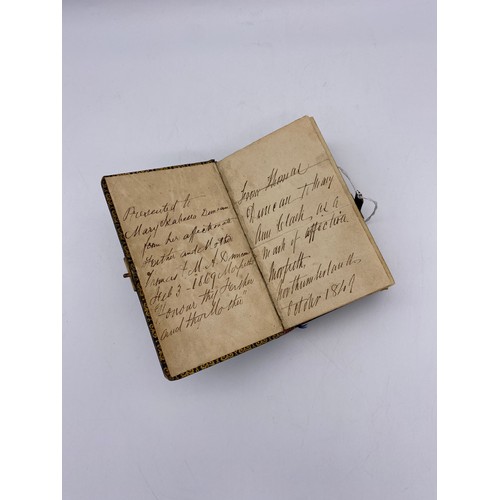 Presented to
Mary Isabella Duncan
from her affectionate
Father and Mother
Thomas & M A Duncan
Feby 3 - 1869 Morpeth
"Honour thy Father
and thy Mother"
From Thomas
Duncan to Mary
Ann Clark, as a
mark of affection
Morpeth
Northumberland
October 1849